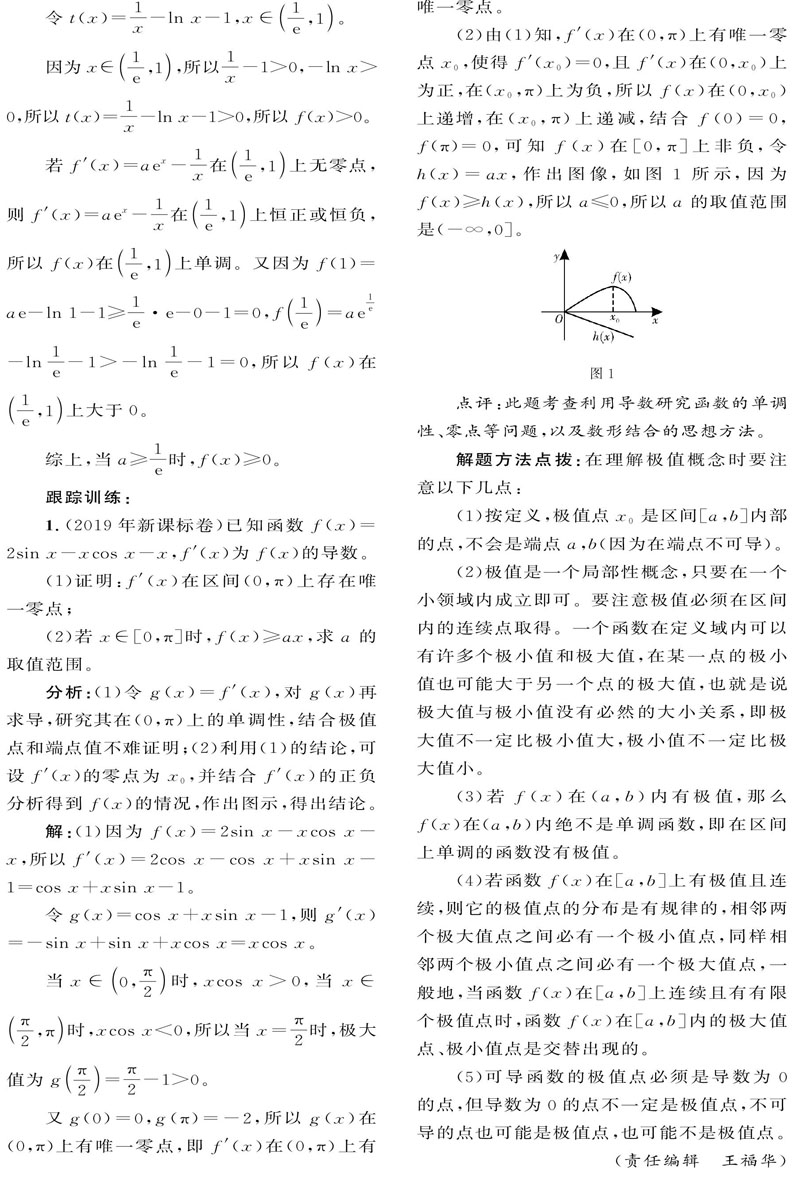 令 t(x)=1/x-ln x-1,x∈(1/e,1)。
因为 x∈(1/e,1),所以1/x-1>0,-ln x>
0,所以 t(x)=1/x-ln x-1>0,所以 f(x)>0。
若 f′(x)=aeˣ-1/x在(1/e,1)上无零点,
则 f′(x)=aeˣ-1/x在(1/e,1)上恒正或恒负,
所以 f(x)在(1/e,1)上单调。又因为 f(1)=
ae-ln 1-1≥1/e·e-0-1=0,f(1/e)=ae^(1/e)
-ln 1/e-1>-ln 1/e-1=0,所以 f(x)在
(1/e,1)上大于 0。
综上,当 a≥1/e时,f(x)≥0。
跟踪训练:
1. (2019 年新课标卷)已知函数 f(x)=
2sin x-xcos x-x,f′(x)为 f(x)的导数。
(1)证明:f′(x)在区间(0,π)上存在唯
一零点;
(2)若 x∈[0,π]时,f(x)≥ax,求 a 的
取值范围。
分析:(1)令 g(x)=f′(x),对 g(x)再
求导,研究其在(0,π)上的单调性,结合极值
点和端点值不难证明;(2)利用(1)的结论,可
设 f′(x)的零点为 x₀,并结合 f′(x)的正负
分析得到 f(x)的情况,作出图示,得出结论。
解:(1)因为 f(x)=2sin x-xcos x-
x,所以 f′(x)=2cos x-cos x+xsin x-
1=cos x+xsin x-1。
令 g(x)=cos x+xsin x-1,则 g′(x)
=-sin x+sin x+xcos x=xcos x。
当 x∈(0,π/2)时,xcos x>0,当 x∈
(π/2,π)时,xcos x<0,所以当 x=π/2时,极大
值为 g(π/2)=π/2-1>0。
又 g(0)=0,g(π)=-2,所以 g(x)在
(0,π)上有唯一零点,即 f′(x)在(0,π)上有
唯一零点。
(2)由(1)知,f′(x)在(0,π)上有唯一零
点 x₀,使得 f′(x₀)=0,且 f′(x)在(0,x₀)上
为正,在(x₀,π)上为负,所以 f(x)在(0,x₀)
上递增,在(x₀,π)上递减,结合 f(0)=0,
f(π)=0,可知 f(x)在[0,π]上非负,令
h(x)=ax,作出图像,如图 1 所示,因为
f(x)≥h(x),所以 a≤0,所以 a 的取值范围
是(-∞,0]。
y
f(x)
O x₀ x
h(x)
图 1
点评:此题考查利用导数研究函数的单调
性、零点等问题,以及数形结合的思想方法。
解题方法点拨:在理解极值概念时要注
意以下几点:
(1)按定义,极值点 x₀ 是区间[a,b]内部
的点,不会是端点 a,b(因为在端点不可导)。
(2)极值是一个局部性概念,只要在一个
小领域内成立即可。要注意极值必须在区间
内的连续点取得。一个函数在定义域内可以
有许多个极小值和极大值,在某一点的极小
值也可能大于另一个点的极大值,也就是说
极大值与极小值没有必然的大小关系,即极
大值不一定比极小值大,极小值不一定比极
大值小。
(3)若 f(x)在(a,b)内有极值,那么
f(x)在(a,b)内绝不是单调函数,即在区间
上单调的函数没有极值。
(4)若函数 f(x)在[a,b]上有极值且连
续,则它的极值点的分布是有规律的,相邻两
个极大值点之间必有一个极小值点,同样相
邻两个极小值点之间必有一个极大值点,一
般地,当函数 f(x)在[a,b]上连续且有有限
个极值点时,函数 f(x)在[a,b]内的极大值
点、极小值点是交替出现的。
(5)可导函数的极值点必须是导数为 0
的点,但导数为 0 的点不一定是极值点,不可
导的点也可能是极值点,也可能不是极值点。
(责任编辑 王福华)